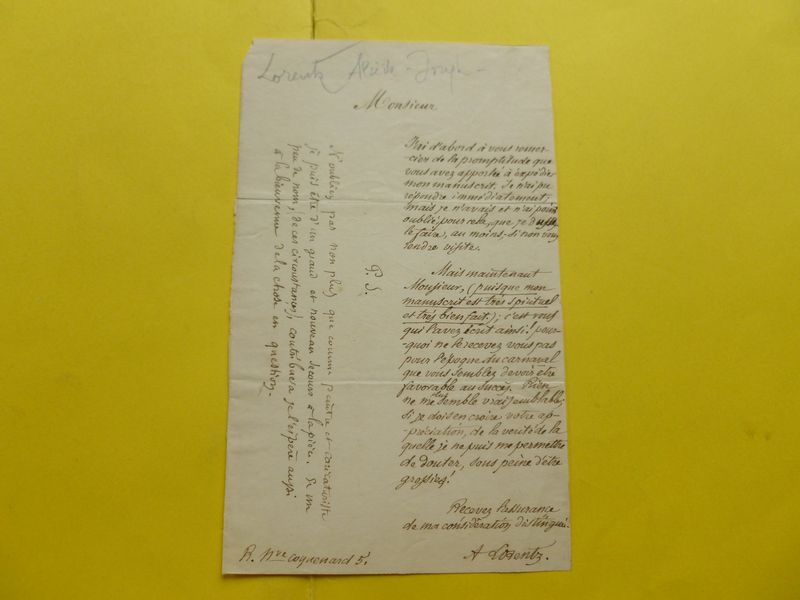 Lorentz Alcide - Joseph -
Monsieur
J'ai d'abord à vous remer-
cier de la promptitude que
vous avez apportée à expédier
mon manuscrit. Je n'ai pu
répondre immédiatement,
mais je n'avais et n'ai point
oublié, pour cela, que je dusse
le faire, au moins, si non vous
rendre visite.
Mais maintenant
Monsieur, (puisque mon
manuscrit est très spirituel
et très bien fait); c'est vous
qui l'avez écrit ainsi! pour-
quoi ne le recevez vous pas
pour l'époque du carnaval
que vous semblez devoir être
favorable au succès. Rien
ne me semble vraisemblable,
si je dois en croire votre ap-
préciation, de la verité de la
quelle je ne puis me permettre
de douter, sous peine d'être
grossier!
Recevez l'assurance
de ma considération distinguée.
A Lorentz.
R. Nve coquenard 5.
P. S.
N'oubliez pas non plus que comme peintre et caricaturiste
je puis être d'un grand et nouveau secours à la pièce. Un
peu de nom, de ces circonstances, contribuera je l'espère aussi
à la bienvenue de la chose en question.